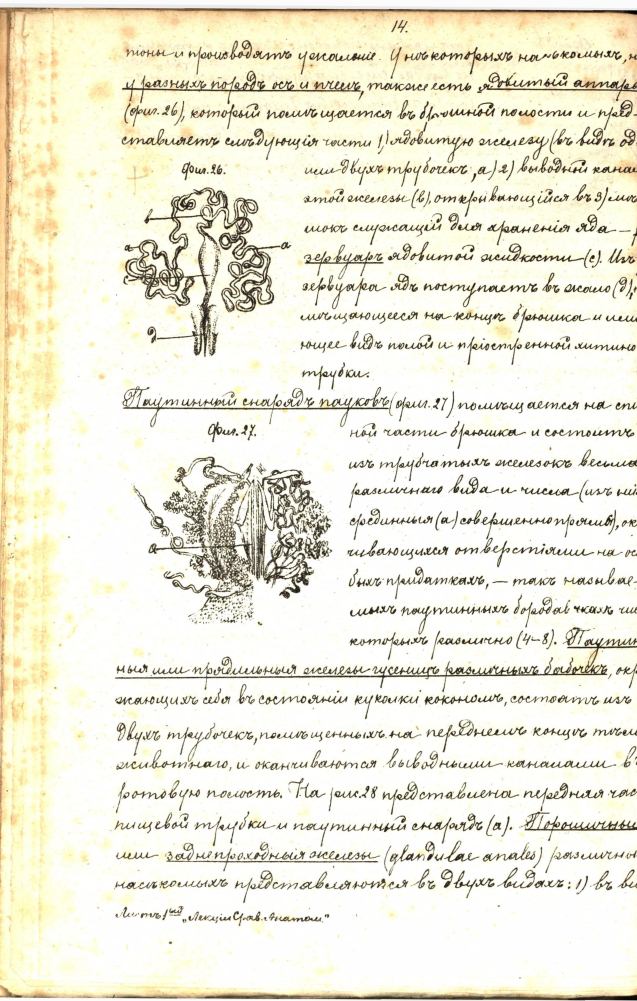 14.
тоны и производятъ ужаленіе. У нѣкоторыхъ насѣкомыхъ, н
у разныхъ породъ осъ и пчелъ, также есть ядовитый аппара
(фиг. 26), который помѣщается въ брюшной полости и пред-
ставляетъ слѣдующія части 1) ядовитую железу (въ видѣ од
Фиг. 26.
или двухъ трубочекъ, а) 2) выводный кана
этой железы (в), открывающійся въ 3) мѣ
шокъ служащій для храненія яда —
зервуаръ ядовитой жидкости (с). Изъ
зервуара ядъ поступаетъ въ жало (д),
мѣщающееся на концѣ брюшка и имѣ
ющее видъ полой и пріостренной хитино
трубки.
в
а
а
с
д
Паутинный снарядъ пауковъ (фиг. 27) помѣщается на спи
Фиг. 27.
ной части брюшка и состоитъ
изъ трубчатыхъ железокъ весьма
различнаго вида и числа (изъ ни
срединныя (а) совершенно прямыя), ок
чивающихся отверстіями на ос
быхъ придаткахъ, — такъ называе-
мыхъ паутинныхъ бородавкахъ чи
которыхъ различно (4–8). Паутин
а
ныя или прядильныя железы гусеницъ различныхъ бабочекъ, окр
жающихъ себя въ состояніи куколки кокономъ, состоятъ изъ
двухъ трубочекъ, помѣщенныхъ на переднемъ концѣ тѣла
животнаго, и оканчиваются выводными каналами въ
ротовую полость. На рис. 28 представлена передняя час
пищевой трубки и паутинный снарядъ (а). Порошичныя
или заднепроходныя железы (glandulae anales) различно
насѣкомыхъ представляются въ двухъ видахъ: 1) въ ви
Листъ 1ый „Лекціи Срав. Анатом."